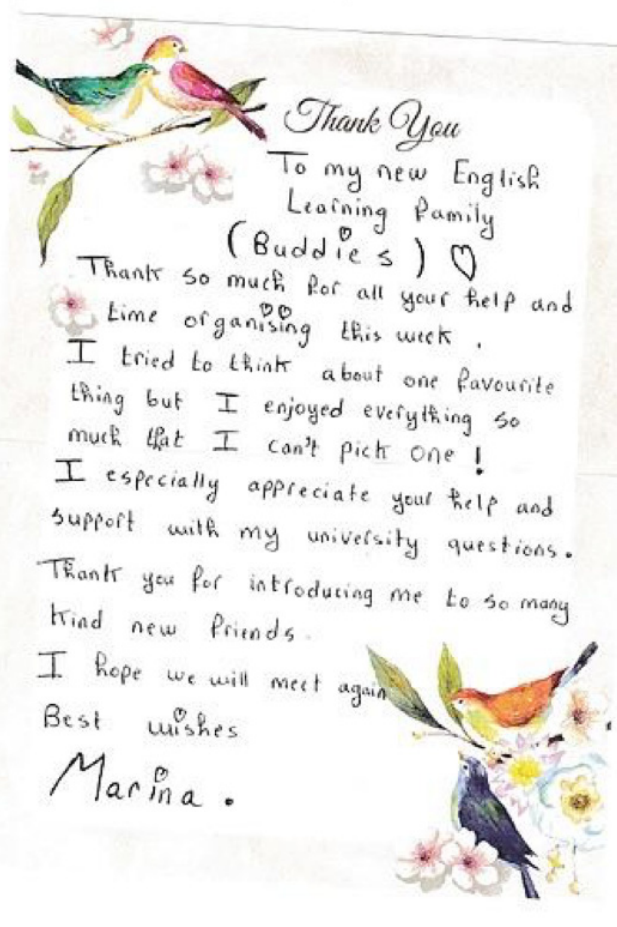 Thank You
To my new English
Learning Family
(Buddies)
Thank so much for all your help and
time organising this week.
I tried to think about one favourite
thing but I enjoyed everything so
much that I can't pick one!
I especially appreciate your help and
support with my university questions.
Thank you for introducing me to so many
kind new friends.
I hope we will meet again
Best wishes
Marina.